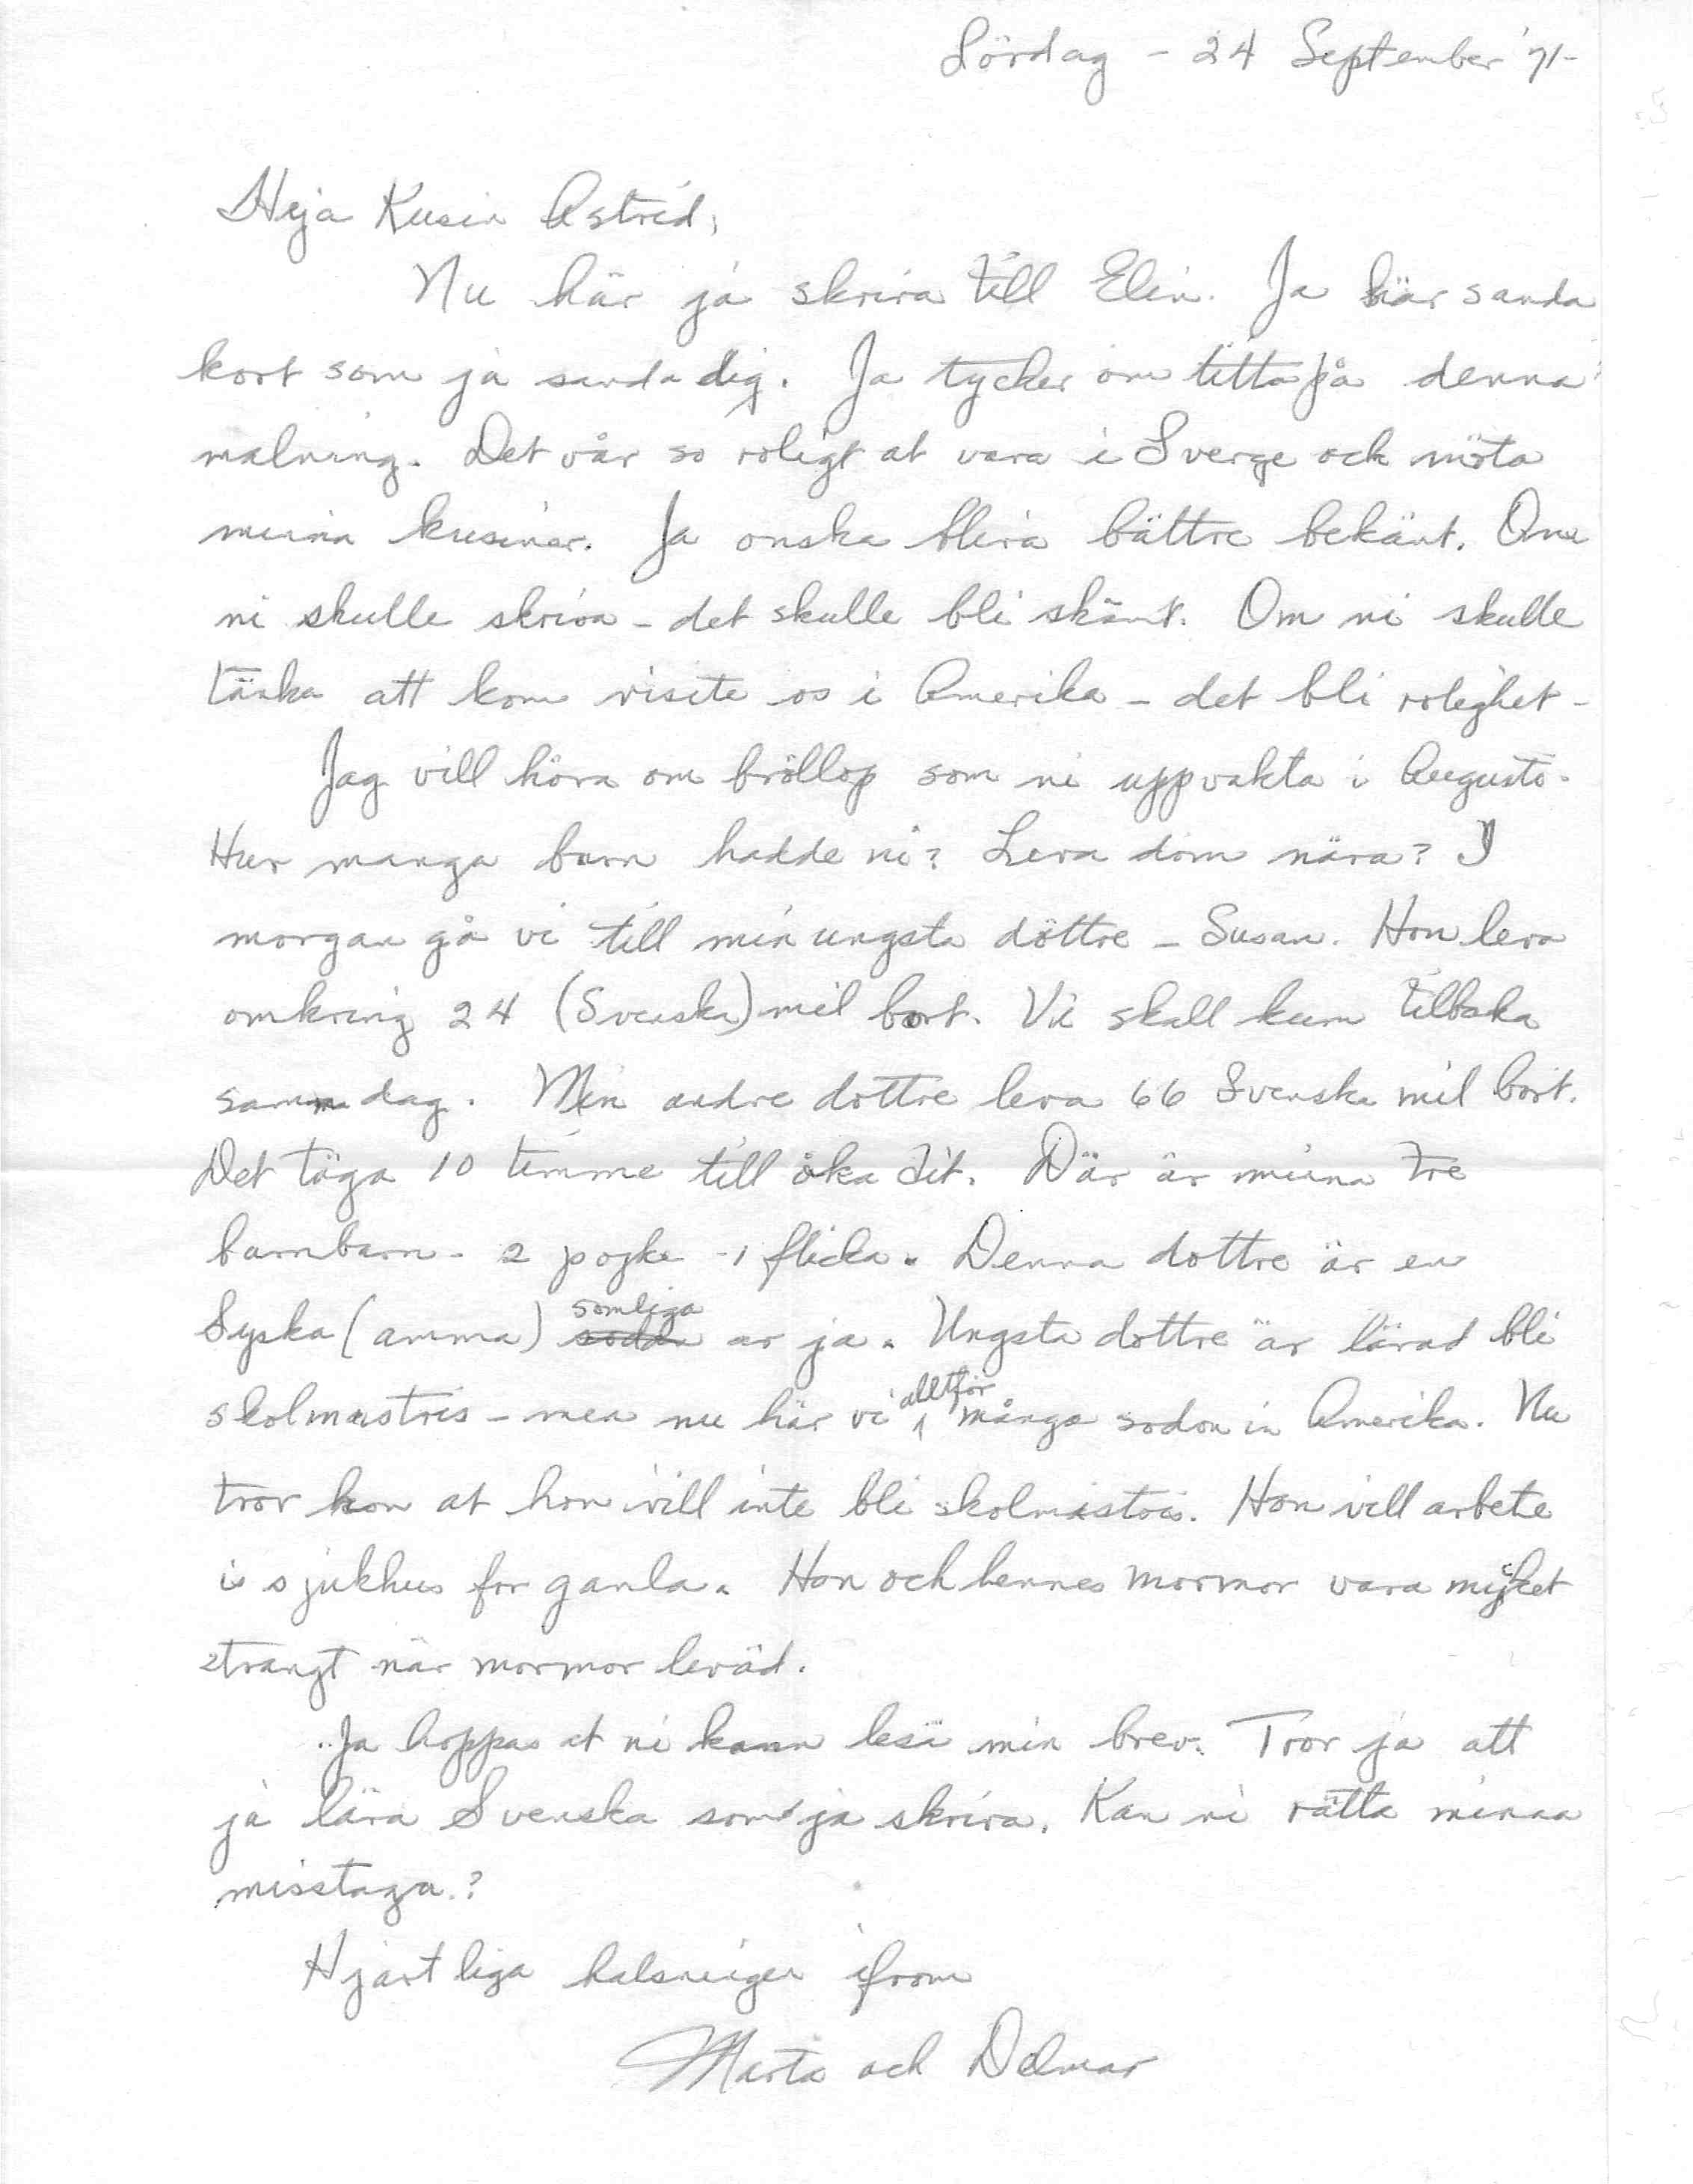 Lördag - 24 September '71-
Heja Kusin Astrid,
Nu här ja skriva till Elin. Ja här sanda
kort som ja sanda dig. Ja tycker om titta på denna
malning. Det vår so roligt at vara i Sverge och möta
minna kusiner. Ja onska bliva bättre bekänt. Om
ni skulle skriva - det skulle bli skänt. Om ni skulle
tänka att kom visite os i Amerika - det bli rolighet -
Jag vill höra om bröllop som ni uppvakta i Augusti.
Hur manga barn hadde ni? Leva dom nära? I
morgan gå vi till min ungsta döttre - Susan. Hon leva
omkring 24 (Svenska) mil bort. Vi skall kum tilbaka
samma dag. Min andre dottre leva 66 Svenska mil bort.
Det täga 10 timme till åka dit. Där är minna tre
barnbarn - 2 pojke - 1 flicka. Denna dottre är en
Syska (amma) somliga ar ja. Ungsta dottre är lärad bli
skolmastris - men nu här vi alltför månge sodon in Amerika. Nu
tror hon at hon vill inte bli skolmastris. Hon vill arbete
i sjukhus for gamla. Hon och hennes mormor vara mycket
trangt när mormor leväd.
Ja hoppas at ni kann lesä min brev. Tror ja att
ja lära Svenska som ja skriva. Kan ni rätta minna
misstaga?
Hjärtliga halsningen ifrom
Marta och Delmar